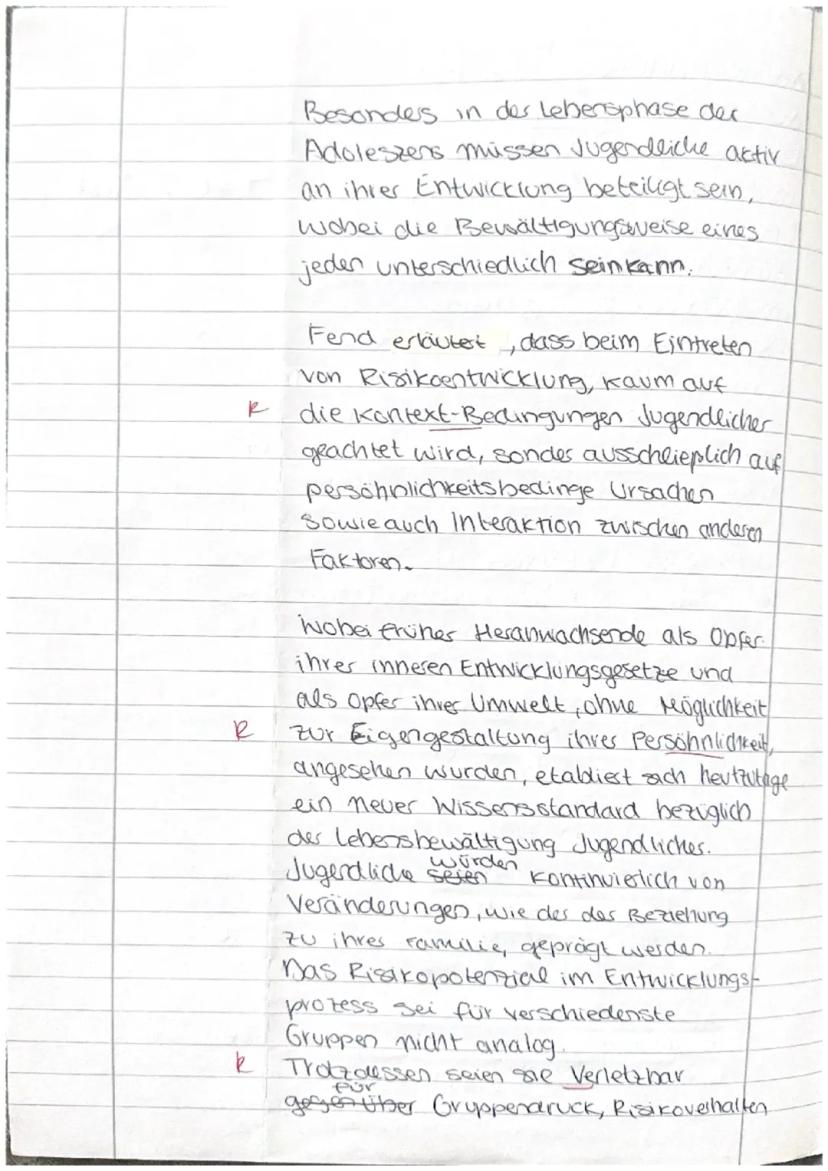 Besonders in der Lebensphase der
Adoleszens müssen Jugendliche aktiv
an ihrer Entwicklung beteiligt sein,
wobei die Bewältigungsweise eines
jeden unterschiedlich sein kann.
Fend erläutert, dass beim Eintreten
von Risikoentwicklung, kaum auf
R die Kontext-Bedingungen Jugendlicher
geachtet wird, sonders ausschließlich auf
persöhnlichkeitsbedinge Ursachen
sowie auch Interaktion zwischen anderen
Faktoren.
Wobei früher Heranwachsende als Opfer
ihrer inneren Entwicklungsgesetze und
als Opfer ihrer Umwelt, ohne Möglichkeit
R zur Eigengestaltung ihrer Persöhnlichkeit,
angesehen wurden, etabliert sich heutzutage
ein neuer Wissensstandard bezüglich
der Lebensbewältigung Jugendlicher.
würden
Jugendliche seien kontinuierlich von
Veränderungen, wie der der Beziehung
zu ihrer Familie, geprägt werden.
Das Risikopotenzial im Entwicklungs-
prozess sei für verschiedenste
Gruppen nicht analog.
R Trotzdessen seien sie Verletzbar
für
gegenüber Gruppendruck, Risikoverhalten